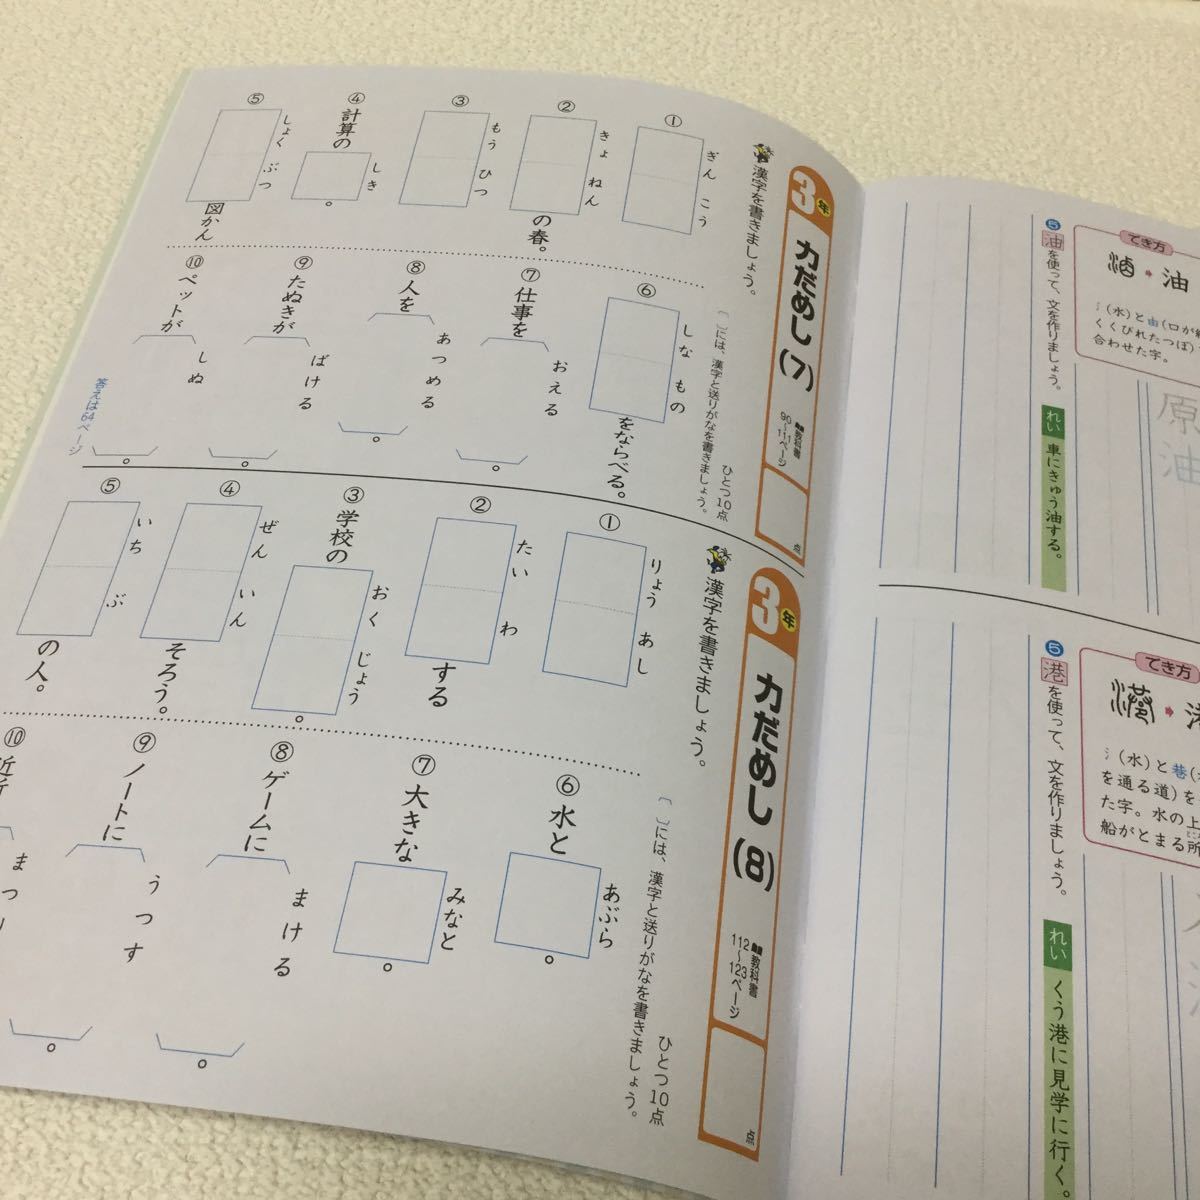 3年 力だめし(7)
教科書 90〜111ページ
点
漢字を書きましょう。
〔 〕には、漢字と送りがなを書きましょう。
ひとつ10点
① ぎんこう
② きょねん の春。
③ もうひつ
④ 計算の しき 。
⑤ しょくぶつ 図かん
⑥ しなもの をならべる。
⑦ 仕事を おえる 。
⑧ 人を あつめる 。
⑨ たぬきが ばける 。
⑩ ペットが しぬ 。
答えは64ページ
3年 力だめし(8)
教科書 112〜123ページ
点
漢字を書きましょう。
〔 〕には、漢字と送りがなを書きましょう。
ひとつ10点
① りょうあし
② たいわ する
③ 学校の おくじょう 。
④ ぜんいん そろう。
⑤ いちぶ の人。
⑥ 水と あぶら 。
⑦ 大きな みなと 。
⑧ ゲームに まける 。
⑨ ノートに うつす 。
⑩
でき方
油
氵(水)と由(口が
くくびれたつぼ)
合わせた字。
原油
⑤ 油を使って、文を作りましょう。
れい 車にきゅう油する。
でき方
氵(水)と巷(
を通る道)を
た字。水の上
船がとまる所
⑤ 港を使って、文を作りましょう。
れい くう港に見学に行く。